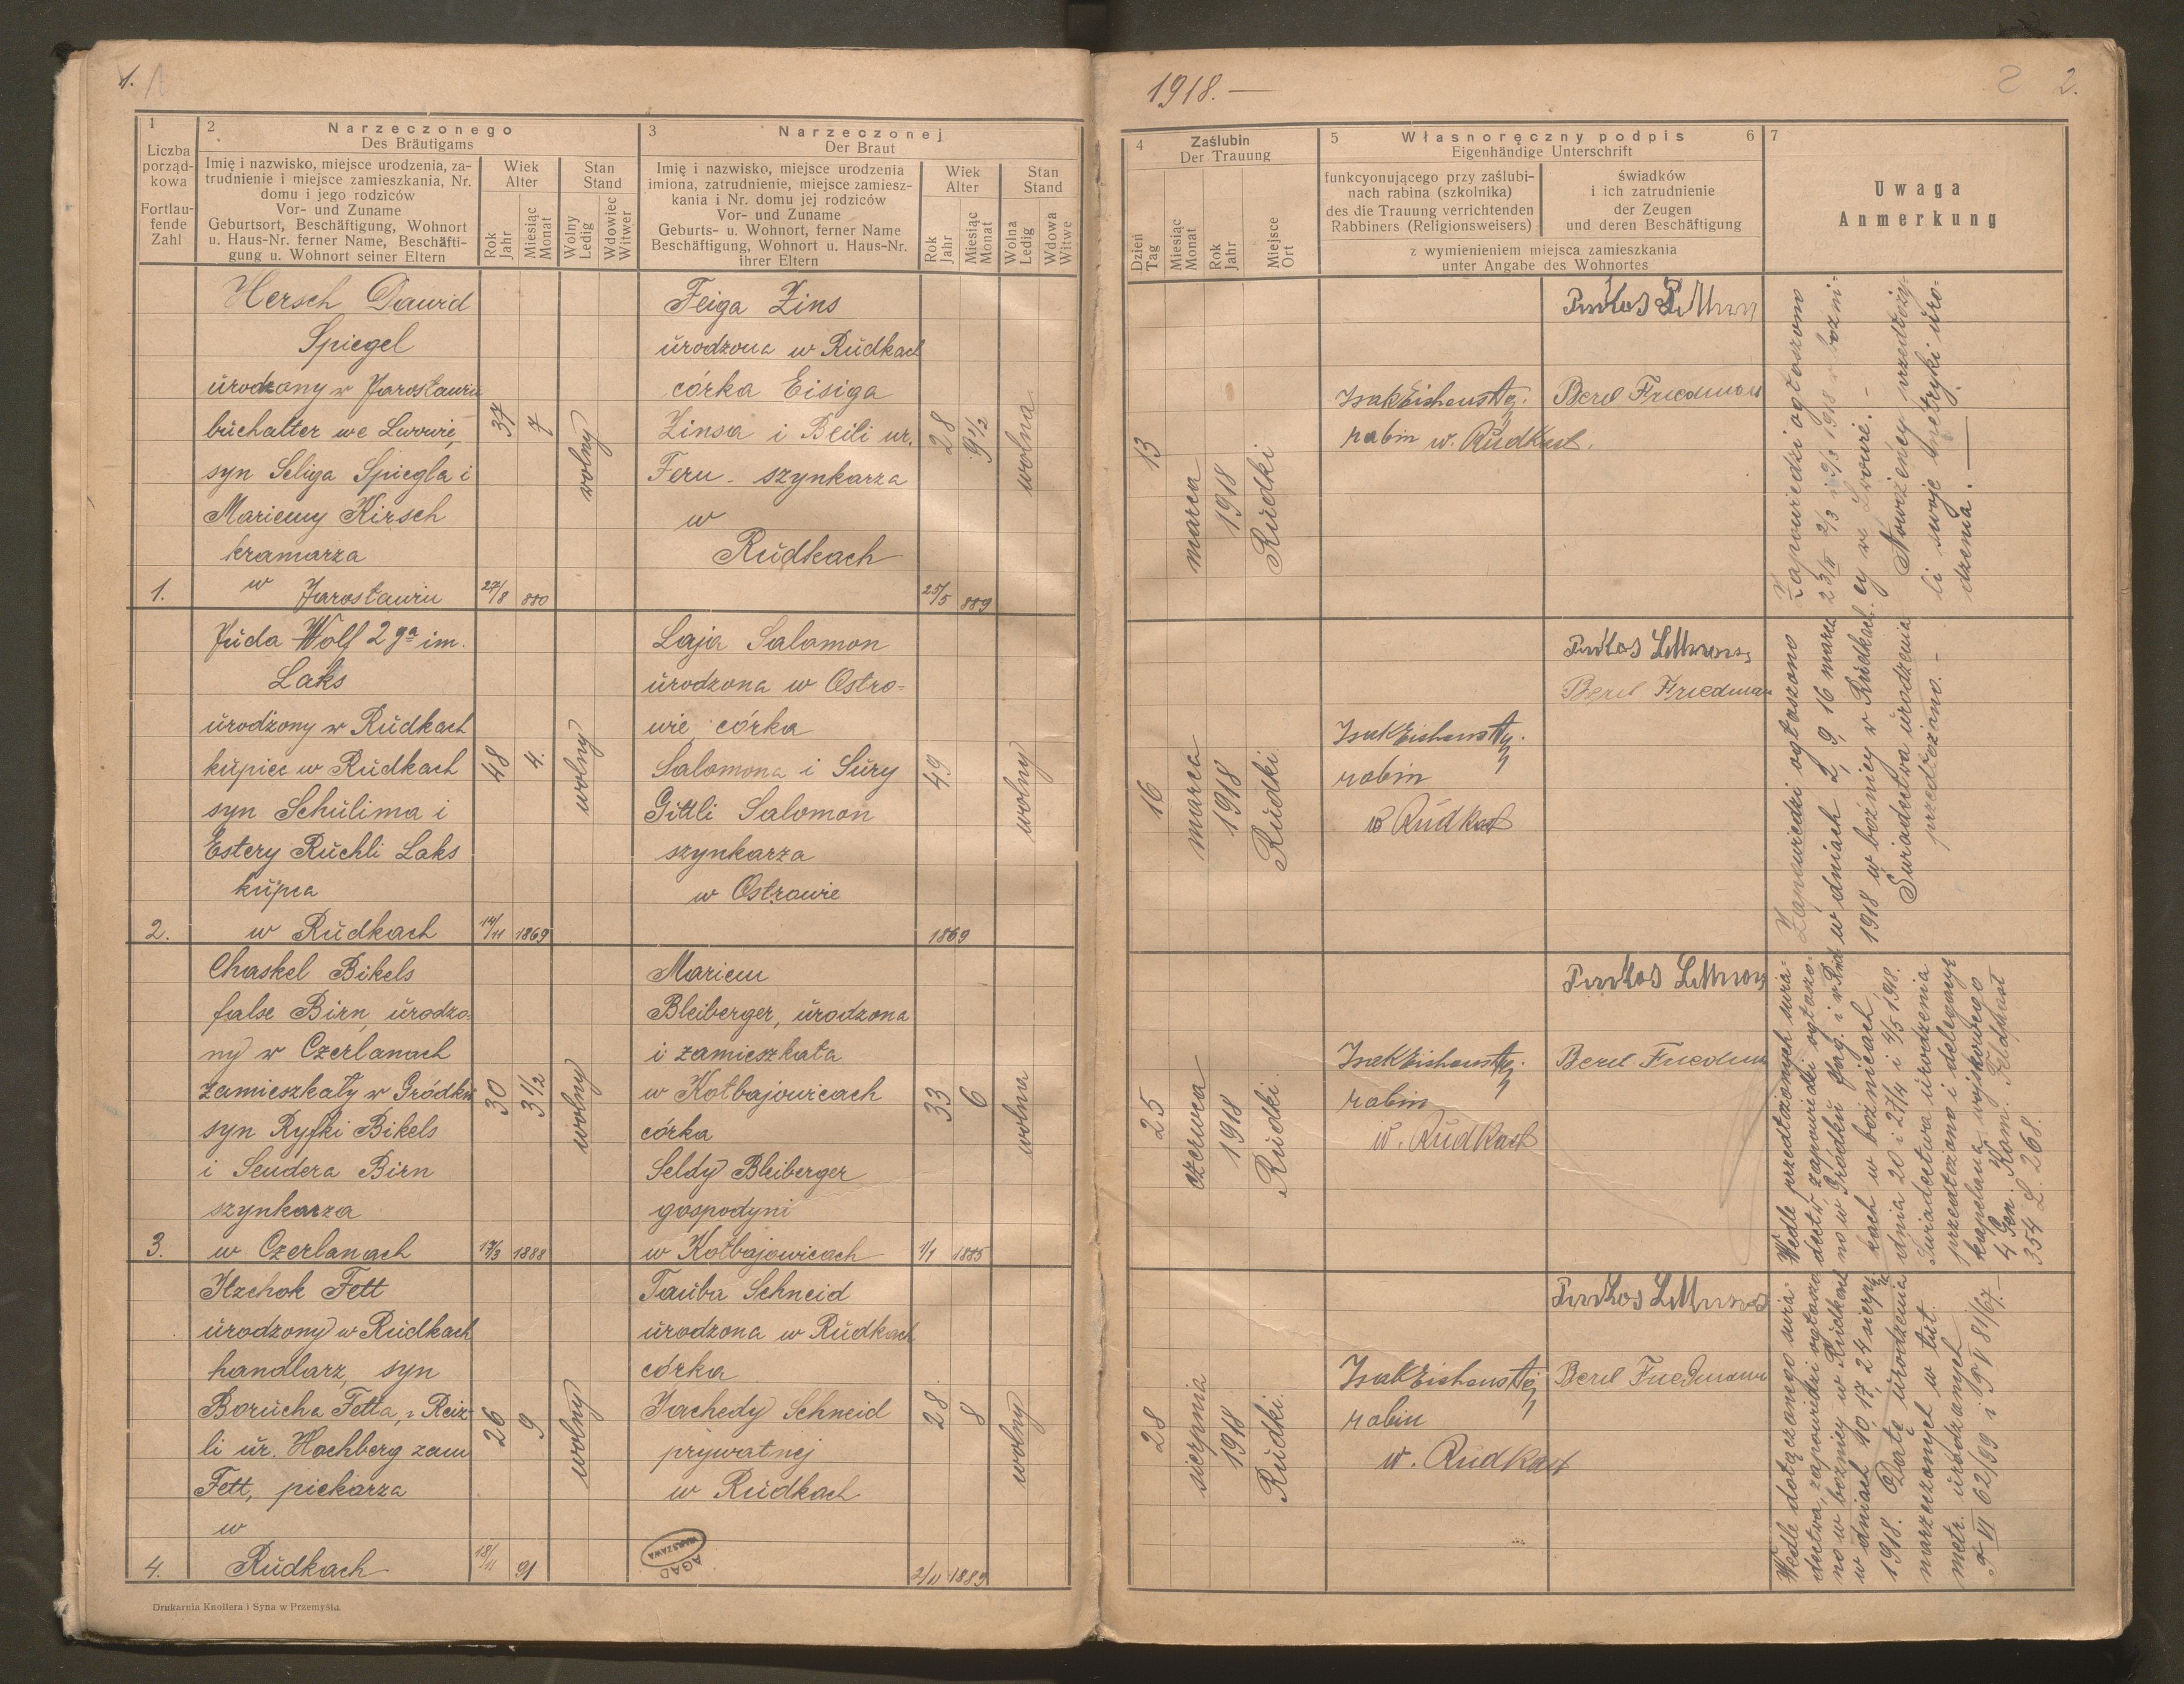 1.
1918. —
2.
1
Liczba
porząd-
kowa
Fortlau-
fende
Zahl
2
Narzeczonego
Des Bräutigams
Imię i nazwisko, miejsce urodzenia, za-
trudnienie i miejsce zamieszkania, Nr.
domu i jego rodziców
Vor- und Zuname
Geburtsort, Beschäftigung, Wohnort
u. Haus-Nr. ferner Name, Beschäfti-
gung u. Wohnort seiner Eltern
Wiek
Alter
Rok
Jahr
Miesiąc
Monat
Stan
Stand
Wolny
Ledig
Wdowiec
Witwer
3
Narzeczonej
Der Braut
Imię i nazwisko, miejsce urodzenia
imiona, zatrudnienie, miejsce zamiesz-
kania i Nr. domu jej rodziców
Vor- und Zuname
Geburts- u. Wohnort, ferner Name
Beschäftigung, Wohnort u. Haus-Nr.
ihrer Eltern
Wiek
Alter
Rok
Jahr
Miesiąc
Monat
Stan
Stand
Wolna
Ledig
Wdowa
Witwe
4
Zaślubin
Der Trauung
Dzień
Tag
Miesiąc
Monat
Rok
Jahr
Miejsce
Ort
5
Własnoręczny podpis
6
Eigenhändige Unterschrift
funkcyonującego przy zaślubi-
nach rabina (szkolnika)
des die Trauung verrichtenden
Rabbiners (Religionsweisers)
świadków
i ich zatrudnienie
der Zeugen
und deren Beschäftigung
z wymienieniem miejsca zamieszkania
unter Angabe des Wohnortes
7
Uwaga
Anmerkung
1.
Hersch Dawid
Spiegel
urodzony w Jarosławiu
buchalter we Lwowie
syn Seliga Spiegla i
Mariemy Kirsch
kramarza
w Jarosławiu
37
7
27/8 880
wolny
Feiga Zins
urodzona w Rudkach
córka Eisiga
Zinsa i Beili ur.
Feru - szynkarza
w
Rudkach
28
9 1/2
25/5 889
wolna
13
marca
1918
Rudki
rabin w. Rudkach.
Berl Friedman
Zapowiedzi ogłoszono
23/II 2/3 i 9/3 1918 w bożni-
cy we Lwowie. -
Nowożeńcy przedłoży-
li swoje metryki uro-
dzenia. —
2.
Juda Wolf 2ga im.
Laks
urodzony w Rudkach
kupiec w Rudkach
syn Schulima i
Estery Ruchli Laks
kupca
w Rudkach
48
4.
14/11 1869
wolny
Laja Salamon
urodzona w Ostro=
wie córka
Salamona i Sury
Gittli Salomon
szynkarza
w Ostrowie
49
1869
wolny
16
marca
1918
Rudki
rabin
w Rudkach
Berl Friedman
Zapowiedzi ogłoszono
w dniach 2, 9, 16 marca
1918 w bożnicy w Rudkach
Świadectwa urodzenia
przedłożono. -
3.
Chaskel Bikels
false Birn, urodzo-
ny w Czerlanach
zamieszkały w Gródku
syn Ryfki Bikels
i Sendera Birn
szynkarza
w Czerlanach
30
3 1/2
1888
wolny
Mariem
Bleiberger, urodzona
i zamieszkała
w Kołbajowicach
córka
Seldy Bleiberger
gospodyni
w Kołbajowicach
33
6
1/1 1885
wolna
25
czerwca
1918
Rudki
rabin
w. Rudkach
Berl Friedman
Wedle przedłożonych świa-
dectw, zapowiedzi ogłoszo-
no w Gródku Jag. i w Rud
kach w bożnicach
dnia 20 i 27/4 i 4/5 1918.
Świadectwa urodzenia
przedłożono i delegację
kapelana wojskowego
4 Gen. Kom. Feldpost
354 L. 268.
4.
Itzchok Fett
urodzony w Rudkach
handlarz, syn
Borucha Fetta, i Reiz-
li ur. Hochberg zam
Fett, piekarza
w
Rudkach
26
9
18/11 91
wolny
Tauba Schneid
urodzona w Rudkach
córka
Jachedy Schneid
prywatnej
w Rudkach
28
8
2/11 1889
wolny
AGAD
WARSZAWA
28
sierpnia
1918
Rudki
rabin
w. Rudkach
Berl Friedmann
Wedle dołączonego świa-
dectwa, zapowiedzi ogłoszo
no w bożnicy w Rudkach
w dniach 10, 17, 24 sierpnia
1918. Datę urodzenia
narzeczonych w tut.
metr. urodzonych
Drukarnia Knollera i Syna w Przemyślu.